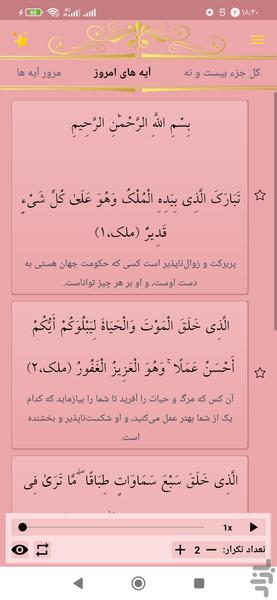 ۱۸:۳۰
کل جزء بیست و نه
آیه های امروز
مرور آیه ها
بِسْمِ اللَّهِ الرَّحْمَٰنِ الرَّحِيمِ
تَبَارَكَ الَّذِي بِيَدِهِ الْمُلْكُ وَهُوَ عَلَىٰ كُلِّ شَيْءٍ
قَدِيرٌ (ملک،۱)
پربرکت و زوال‌ناپذیر است کسی که حکومت جهان هستی به
دست اوست، و او بر هر چیز تواناست.
الَّذِي خَلَقَ الْمَوْتَ وَالْحَيَاةَ لِيَبْلُوَكُمْ أَيُّكُمْ
أَحْسَنُ عَمَلًا ۚ وَهُوَ الْعَزِيزُ الْغَفُورُ (ملک،۲)
آن کس که مرگ و حیات را آفرید تا شما را بیازماید که کدام
یک از شما بهتر عمل می‌کنید، و او شکست‌ناپذیر و بخشنده
است.
الَّذِي خَلَقَ سَبْعَ سَمَاوَاتٍ طِبَاقًا ۖ مَّا تَرَىٰ فِي
1x
تعداد تکرار:
2
بازار